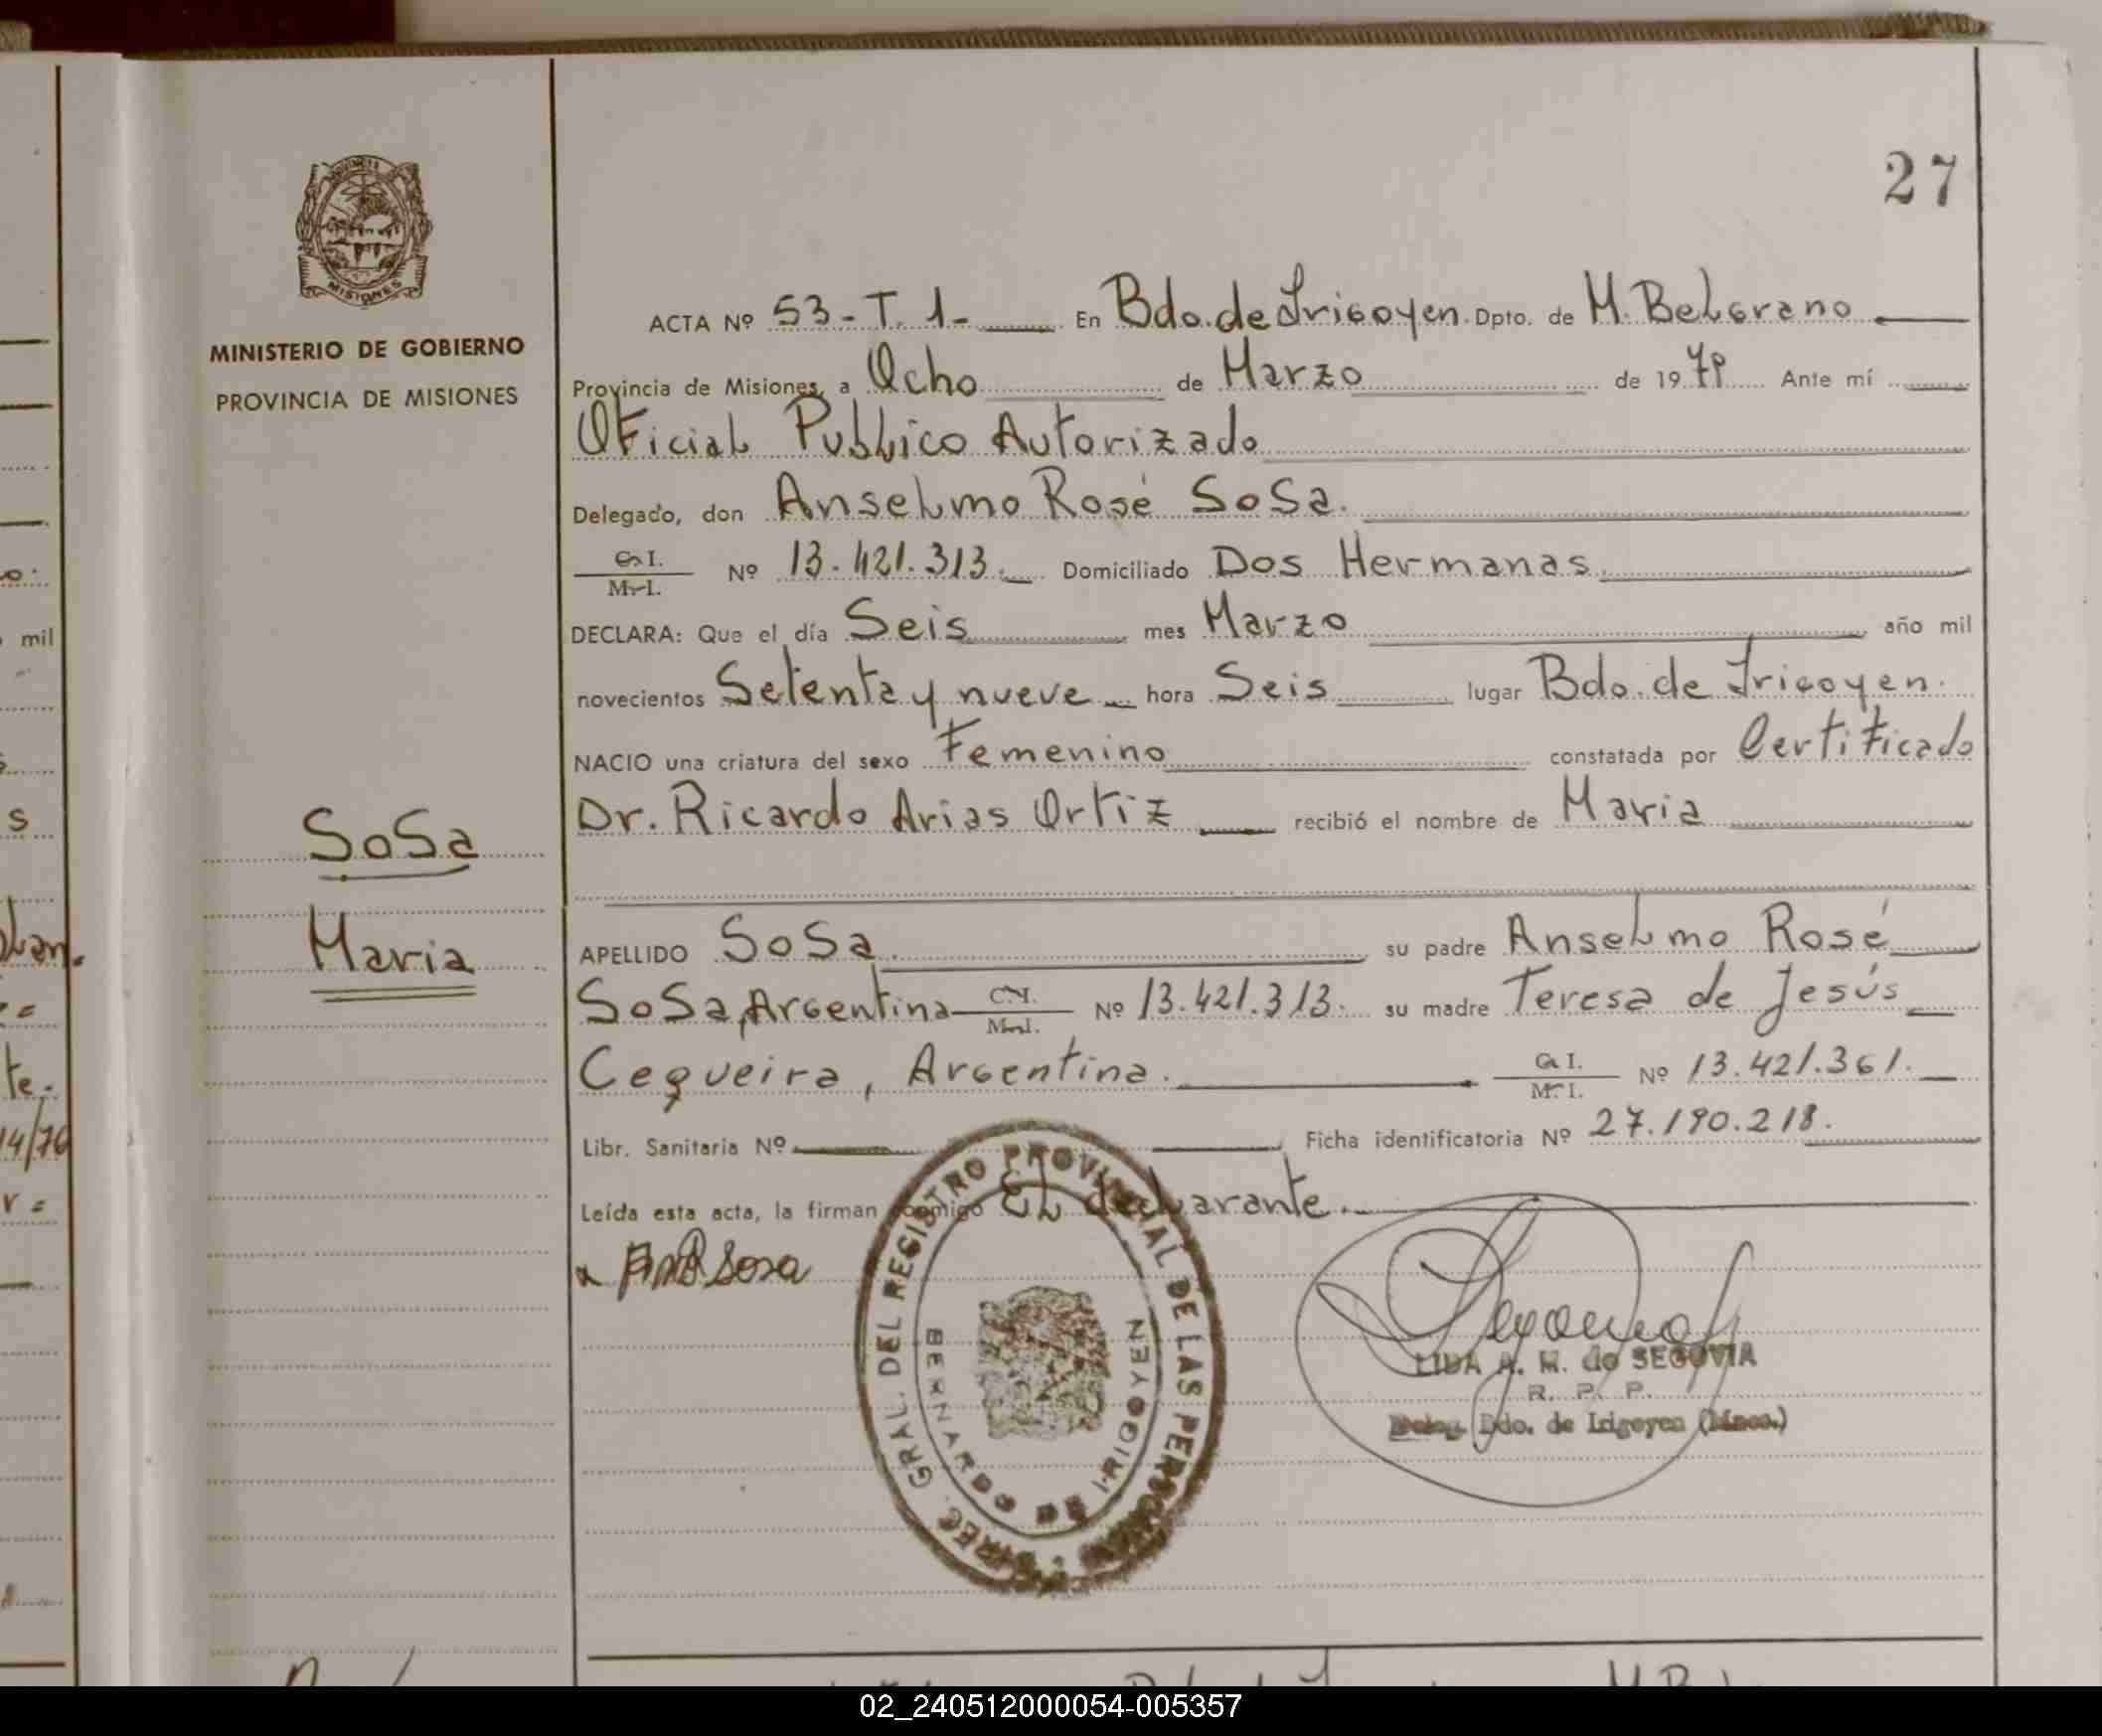 27
MISIONES
MINISTERIO DE GOBIERNO
PROVINCIA DE MISIONES
SoSa
Maria
ACTA Nº 53-T. 1- En Bdo. de Irigoyen. Dpto. de M. Belgrano
Provincia de Misiones, a Ocho de Marzo de 1979 Ante mí
Oficial Publico Autorizado
Delegado, don Anselmo Rosé SoSa.
C. I.
M. I. Nº 13.421.313. Domiciliado Dos Hermanas
DECLARA: Que el día Seis mes Marzo año mil
novecientos Setenta y nueve hora Seis lugar Bdo. de Irigoyen.
NACIO una criatura del sexo Femenino constatada por Certificado
Dr. Ricardo Arias Ortiz recibió el nombre de Maria
APELLIDO SoSa. su padre Anselmo Rosé
SoSa, Argentina C. I.
M. I. Nº 13.421.313. su madre Teresa de Jesús
Cequeira, Argentina. C. I.
M. I. Nº 13.421.361.
Libr. Sanitaria Nº Ficha identificatoria Nº 27.190.218.
Leída esta acta, la firman conmigo El declarante.
Sosa
DIREC. GRAL. DEL REGISTRO PROVINCIAL DE LAS PERSONAS
BERNARDO DE IRIGOYEN
LIDA A. M. de SEGOVIA
R. P. P.
Deleg. Bdo. de Irigoyen (Mnes.)
mil
s
te.
14/76
02_240512000054-005357